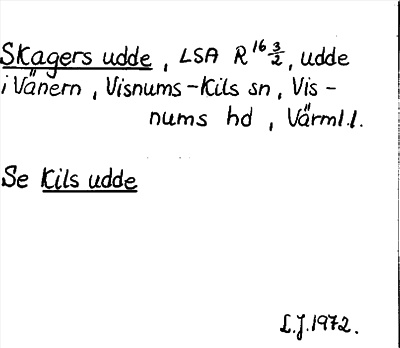 Skagers udde, LSA R 16 3/2, udde
i Vänern, Visnums-Kils sn, Vis-
nums hd, Värml.l.
Se Kils udde
L.J. 1972.